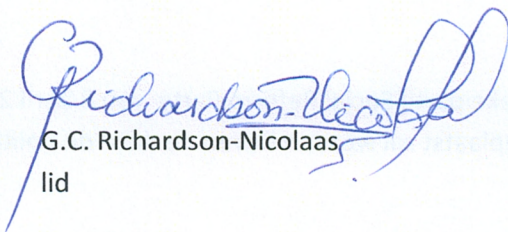 GRichardson-Nicolaas
G.C. Richardson-Nicolaas
lid